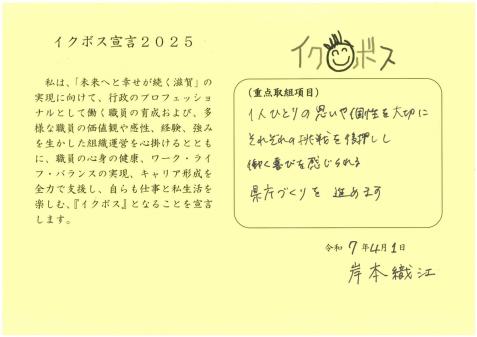 イクボス宣言２０２５
私は、「未来へと幸せが続く滋賀」の
実現に向けて、行政のプロフェッショ
ナルとして働く職員の育成および、多
様な職員の価値観や感性、経験、強み
を生かした組織運営を心掛けるととも
に、職員の心身の健康、ワーク・ライ
フ・バランスの実現、キャリア形成を
全力で支援し、自らも仕事と私生活を
楽しむ、『イクボス』となることを宣言
します。
イクボス
（重点取組項目）
1人ひとりの思いや個性を大切に
それぞれの挑戦を後押しし
働く喜びを感じられる
県庁づくりを進めます
令和 7 年 4 月 1 日
岸本織江